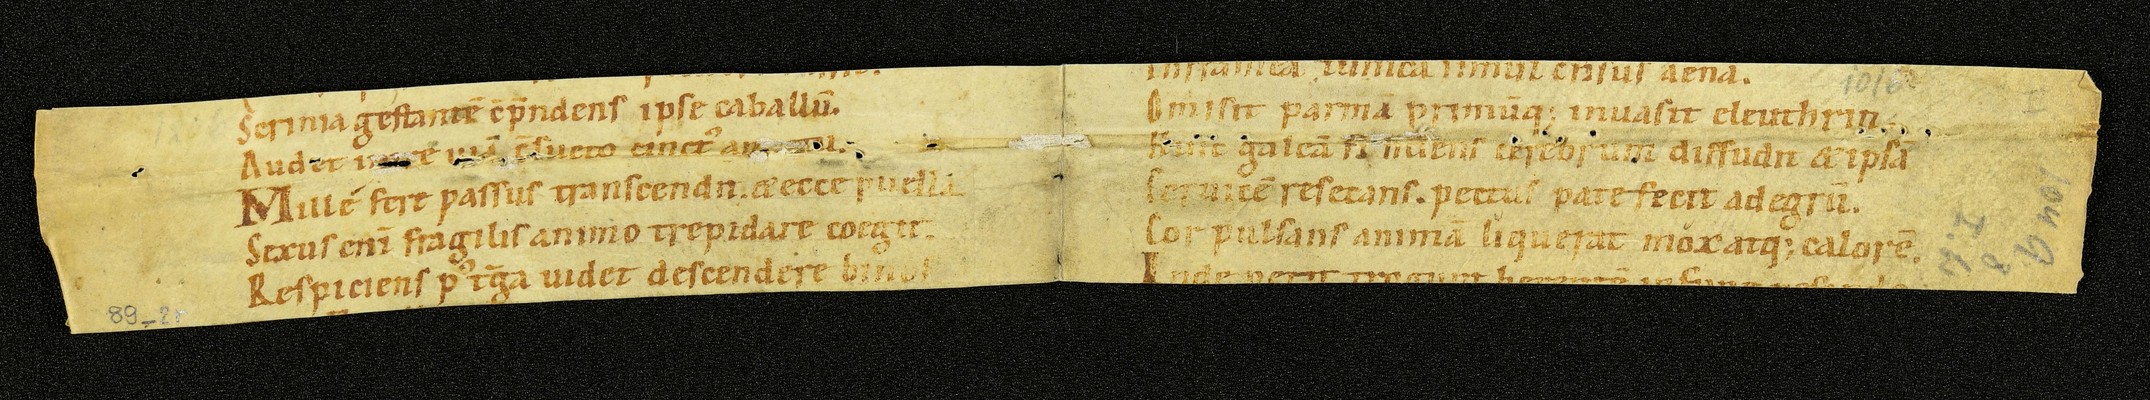 Scrinia gestantē c̄p̄ndens ipse caballū.
Audet uiā c̄sueto cinctꝰ
Mille fere passus transcendit. & ecce puella
Sexus enī fragilis animo trepidare coegit.
Respiciens pꝰ t̄ga uidet descendere binos
89_2r
tunica simul erisus aena.
Omisit parmā primūq; inuasit eleuthrin.
Huic galeā findens cerebrum diffudit & ipsā
Ceruicē resecans. pectus patefecit ad egrū.
Cor pulsans animā liquerat mox atq; calorē.
Inde petit trogum herentē in fune